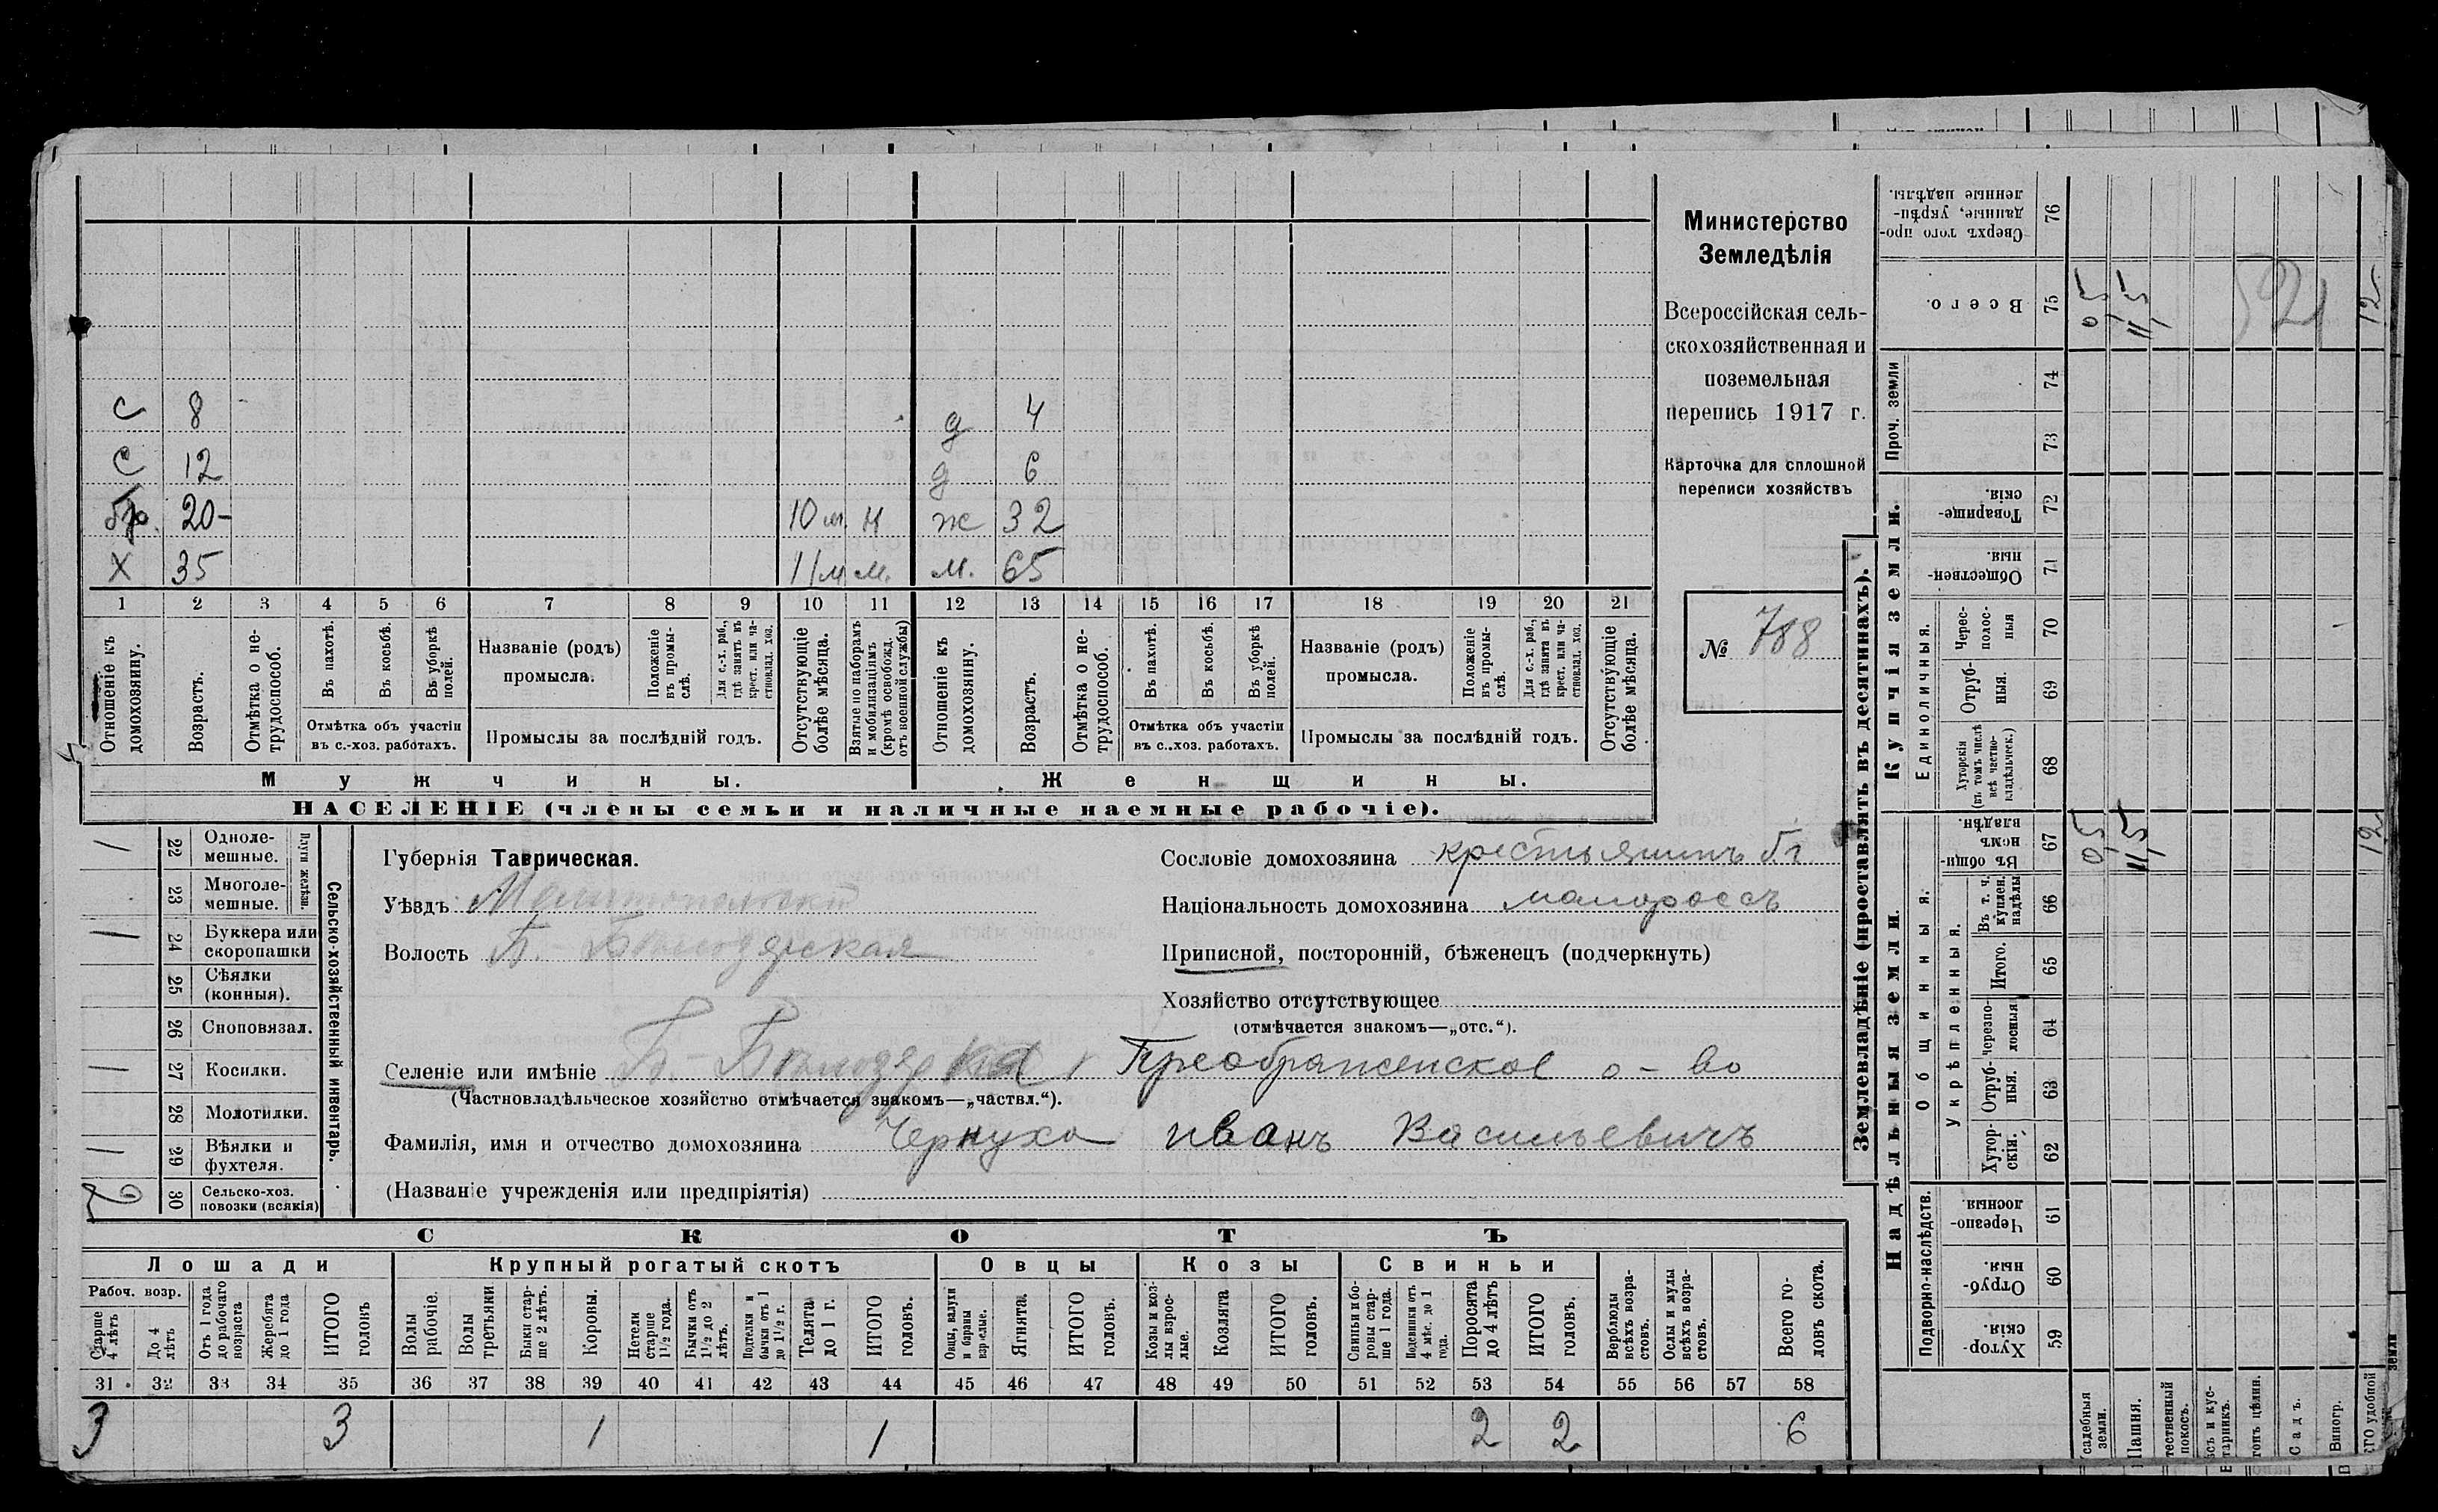 С 8 д 4
С 12 д 6
бр. 20- 10 м. н ж 32
Х 35 11м м. м. 65
1 2 3 4 5 6 7 8 9 10 11 12 13 14 15 16 17 18 19 20 21
Отношеніе къ домохозяину.
Возрастъ.
Отмѣтка о нетрудоспособ.
Въ пахотѣ.
Въ косьбѣ.
Въ уборкѣ полей.
Отмѣтка объ участіи въ с.-хоз. работахъ.
Названіе (родъ) промысла.
Положеніе въ промыслѣ.
Для с.-х. раб., гдѣ занятъ въ крест. или частновлад. хоз.
Промыслы за послѣдній годъ.
Отсутствующіе болѣе мѣсяца.
Взятые по наборамъ и мобилизаціямъ (кромѣ освобожд. отъ военной службы)
Отношеніе къ домохозяину.
Возрастъ.
Отмѣтка о нетрудоспособ.
Въ пахотѣ.
Въ косьбѣ.
Въ уборкѣ полей.
Отмѣтка объ участіи въ с.-хоз. работахъ.
Названіе (родъ) промысла.
Положеніе въ промыслѣ.
Для с.-х. раб., гдѣ занята въ крест. или частновлад. хоз.
Промыслы за послѣдній годъ.
Отсутствующіе болѣе мѣсяца.
Мужчины. Женщины.
НАСЕЛЕНІЕ (члены семьи и наличные наемные рабочіе).
Министерство
Земледѣлія
Всероссійская сель-
скохозяйственная и
поземельная
перепись 1917 г.
Карточка для сплошной
переписи хозяйствъ
№ 788
Сельско-хозяйственный инвентарь.
Плуги желѣзн.
1 22 Одноле-мешные.
23 Многоле-мешные.
1 24 Буккера или скоропашки
25 Сѣялки (конныя).
26 Сноповязал.
1 27 Косилки.
28 Молотилки.
1 29 Вѣялки и фухтеля.
2 30 Сельско-хоз. повозки (всякія)
Губернія Таврическая.
Уѣздъ Мелитопольскій
Волость Б.-Бѣлозерская
Сословіе домохозяина крестьянинъ
Національность домохозяина малороссъ
Приписной, посторонній, бѣженецъ (подчеркнуть)
Хозяйство отсутствующее
(отмѣчается знакомъ—„отс.“).
Селеніе или имѣніе Б.-Бѣлозерка Преображенское о-во
(Частновладѣльческое хозяйство отмѣчается знакомъ—„частвл.“).
Фамилія, имя и отчество домохозяина Чернуха Иванъ Васильевичъ
(Названіе учрежденія или предпріятія)
СКОТЪ
Лошади Крупный рогатый скотъ Овцы Козы Свиньи
Рабоч. возр.
Старше 4 лѣтъ
До 4 лѣтъ
Отъ 1 года до рабочаго возраста
Жеребята до 1 года
ИТОГО головъ
Волы рабочіе.
Волы третьяки
Быки старше 2 лѣтъ.
Коровы.
Нетели старше 1½ года.
Бычки отъ 1½ до 2 лѣтъ.
Подтелки и бычки отъ 1 до 1½ г.
Телята до 1 г.
ИТОГО головъ.
Овцы, валухи и бараны взрослые.
Ягнята.
ИТОГО головъ.
Козы и козлы взрослые.
Козлята
ИТОГО головъ.
Свиньи и боровы старше 1 года.
Подсвинки отъ 4 мѣс. до 1 года.
Поросята до 4 лѣтъ
ИТОГО головъ.
Верблюды всѣхъ возрастовъ.
Ослы и мулы всѣхъ возрастовъ.
Всего головъ скота.
31 32 33 34 35 36 37 38 39 40 41 42 43 44 45 46 47 48 49 50 51 52 53 54 55 56 57 58
3 3 1 1 2 2 6
Землевладѣніе (проставлять въ десятинахъ).
Купчія земли.
Надѣльныя земли.
Сверхъ того проданные, укрѣпленные надѣлы. 76
Всего. 75 0,5 11,5 12
Проч. земли 74
73
Товарищескія. 72
Общественныя. 71
Единоличныя.
Чересполосныя 70
Отрубныя. 69
Хуторскія (въ томъ числѣ всѣ частновладѣльческ.) 68
Общинныя.
Въ общиномъ владѣн. 67 0,5 11,5 12
Укрѣпленныя.
Въ т. ч. куплен. надѣлы 66
Итого. 65
Черезполосныя 64
Отрубныя. 63
Хуторскія. 62
Подворно-наслѣдств.
Черезполосныя 61
Отрубныя. 60
Хуторскія. 59
садебныя земли.
Пашня.
тественный покосъ.
съ и кустарникъ.
гонъ цѣлин.
Садъ.
Виногр.
го удобной
земли